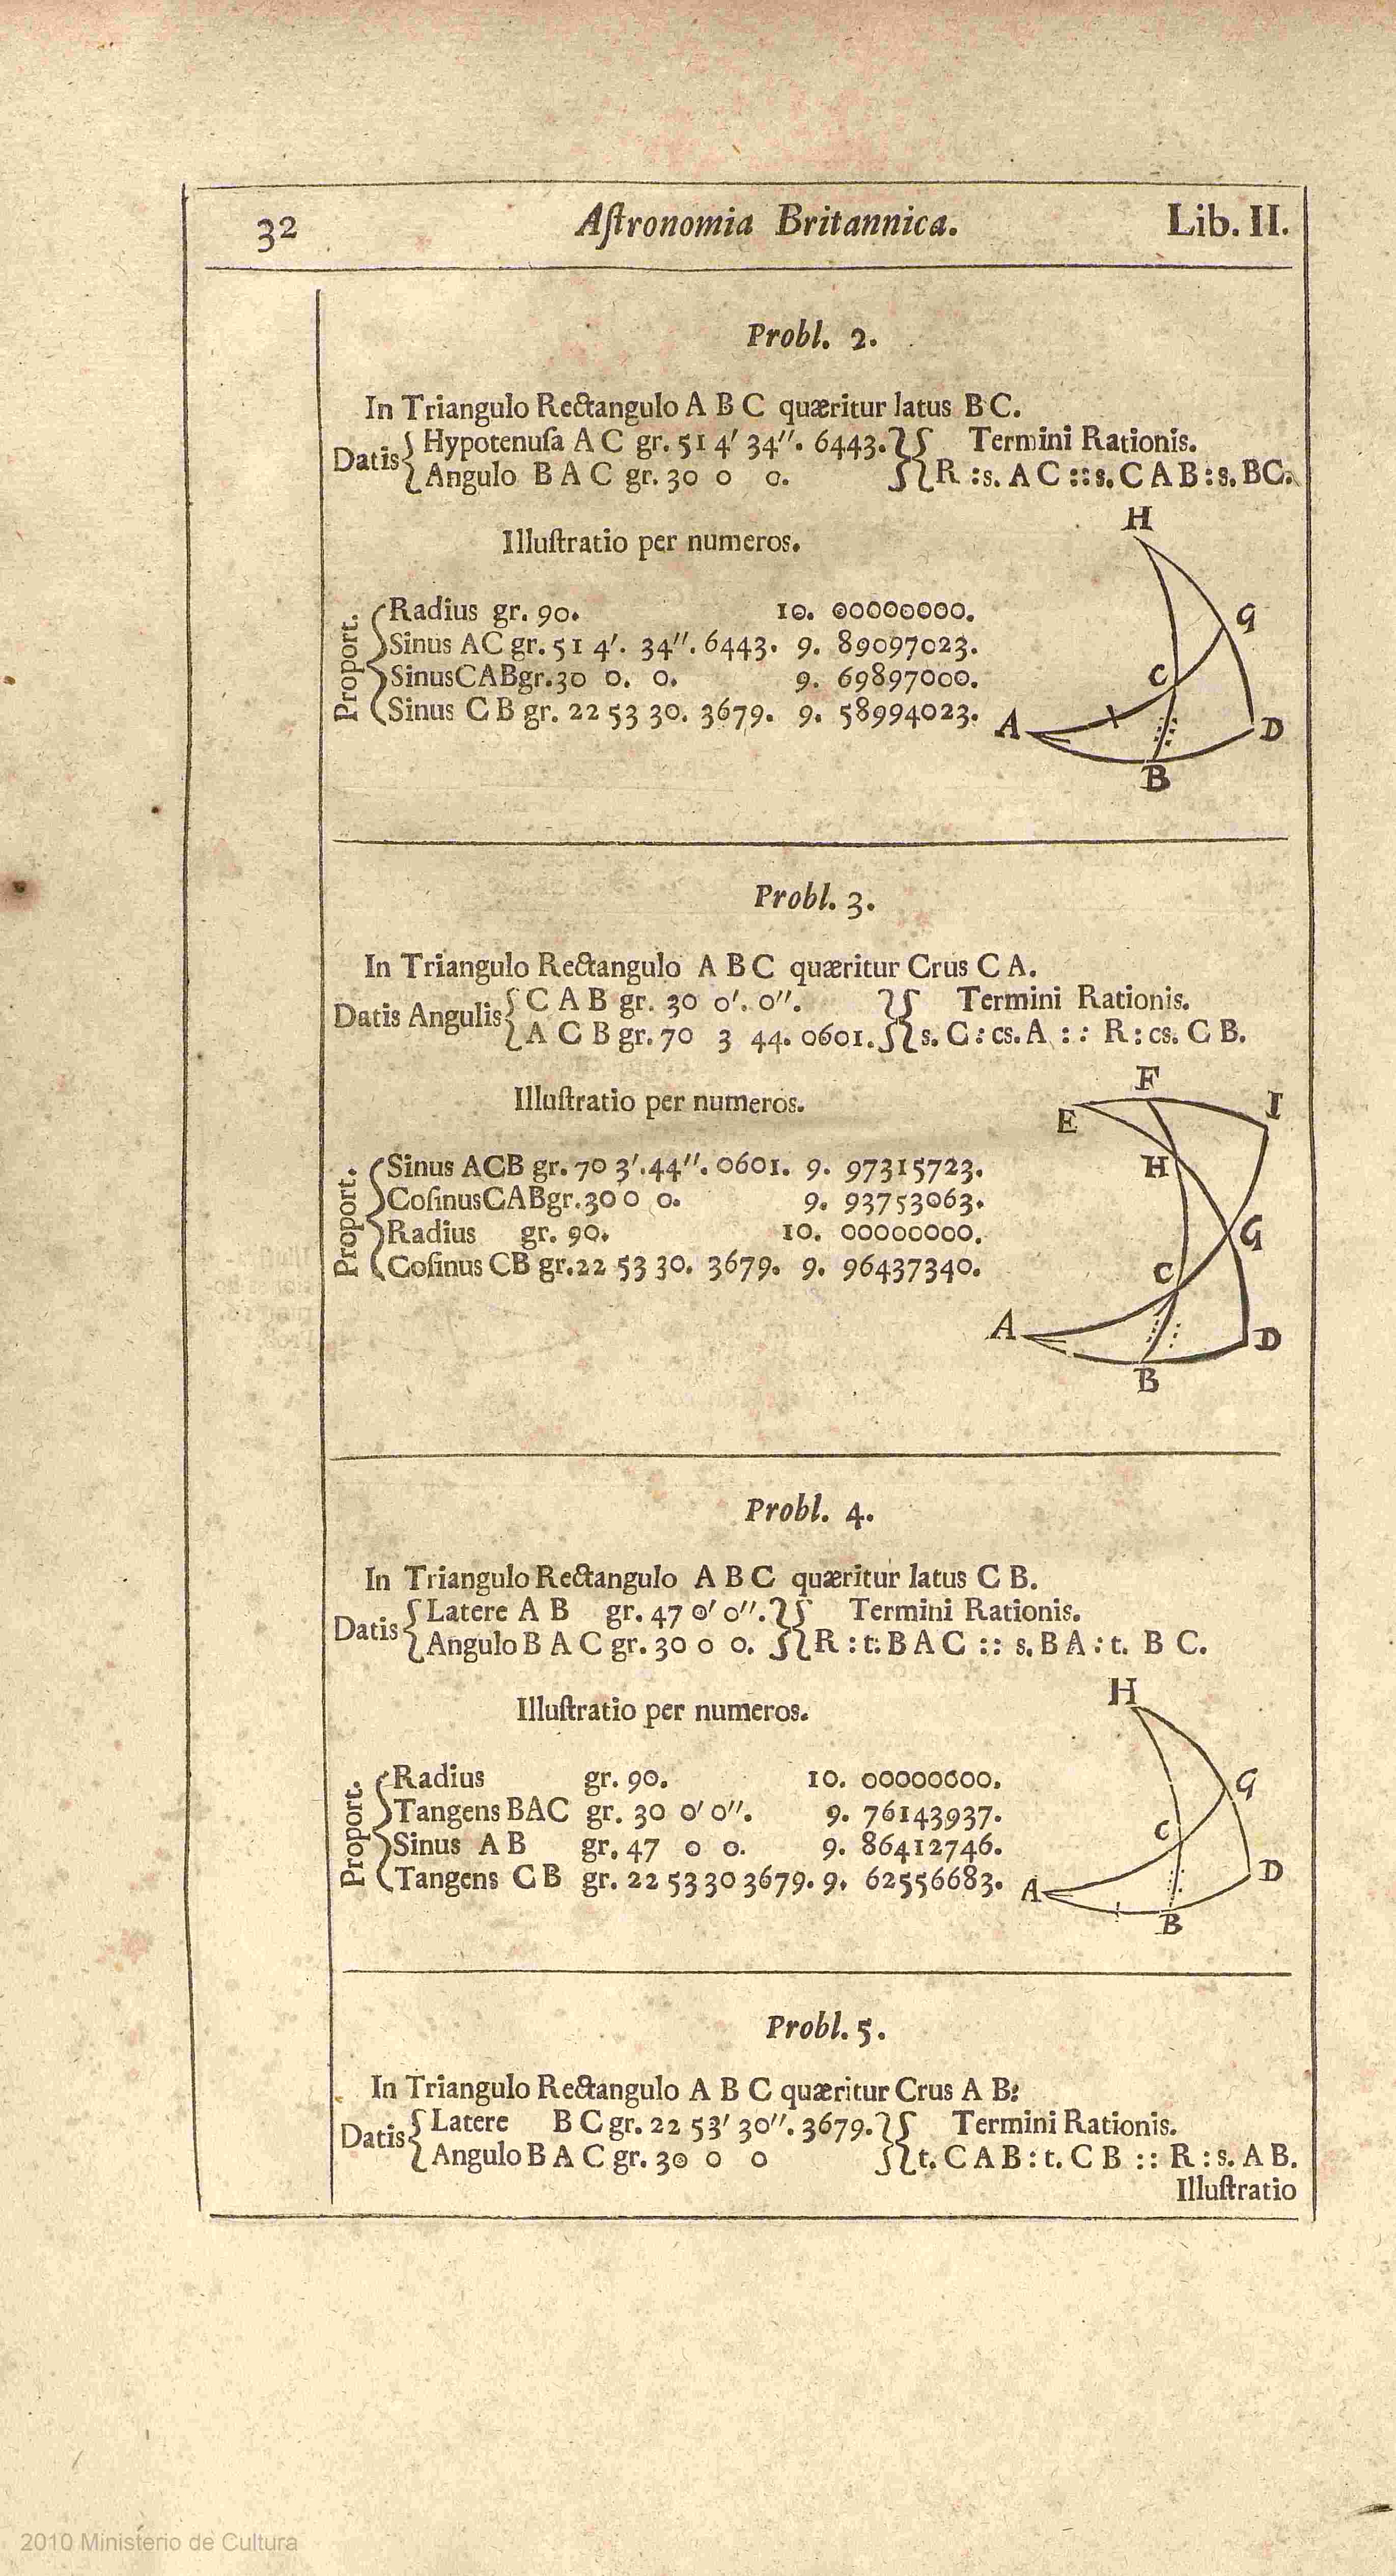 32 Aſtronomia Britannica. Lib. II.
Probl. 2.
In Triangulo Rectangulo A B C quæritur latus B C.
Datis { Hypotenuſa A C gr. 51 4′ 34″. 6443. } { Termini Rationis.
Angulo B A C gr. 30 0 0. R : s. A C :: s. C A B : s. BC.
Illuſtratio per numeros.
Proport.
Radius gr. 90. 10. 00000000.
Sinus AC gr. 51 4′. 34″. 6443. 9. 89097023.
Sinus CAB gr. 30 0. 0. 9. 69897000.
Sinus C B gr. 22 53 30. 3679. 9. 58994023.
H
G
C
A
D
B
Probl. 3.
In Triangulo Rectangulo A B C quæritur Crus C A.
Datis Angulis { C A B gr. 30 0′. 0″. } { Termini Rationis.
A C B gr. 70 3 44. 0601. s. C : cs. A :: R : cs. C B.
Illuſtratio per numeros.
Proport.
Sinus ACB gr. 70 3′. 44″. 0601. 9. 97315723.
Coſinus CAB gr. 30 0 0. 9. 93753063.
Radius gr. 90. 10. 00000000.
Coſinus CB gr. 22 53 30. 3679. 9. 96437340.
F
E
I
H
G
C
A
D
B
Probl. 4.
In Triangulo Rectangulo A B C quæritur latus C B.
Datis { Latere A B gr. 47 0′ 0″. } { Termini Rationis.
Angulo B A C gr. 30 0 0. R : t. B A C :: s. B A : t. B C.
Illuſtratio per numeros.
Proport.
Radius gr. 90. 10. 00000000.
Tangens BAC gr. 30 0′ 0″. 9. 76143937.
Sinus A B gr. 47 0 0. 9. 86412746.
Tangens C B gr. 22 53 30 3679. 9. 62556683.
H
G
C
D
A
B
Probl. 5.
In Triangulo Rectangulo A B C quæritur Crus A B:
Datis { Latere B C gr. 22 53′ 30″. 3679. } { Termini Rationis.
Angulo B A C gr. 30 0 0 t. C A B : t. C B :: R : s. A B.
Illuſtratio
2010 Ministerio de Cultura